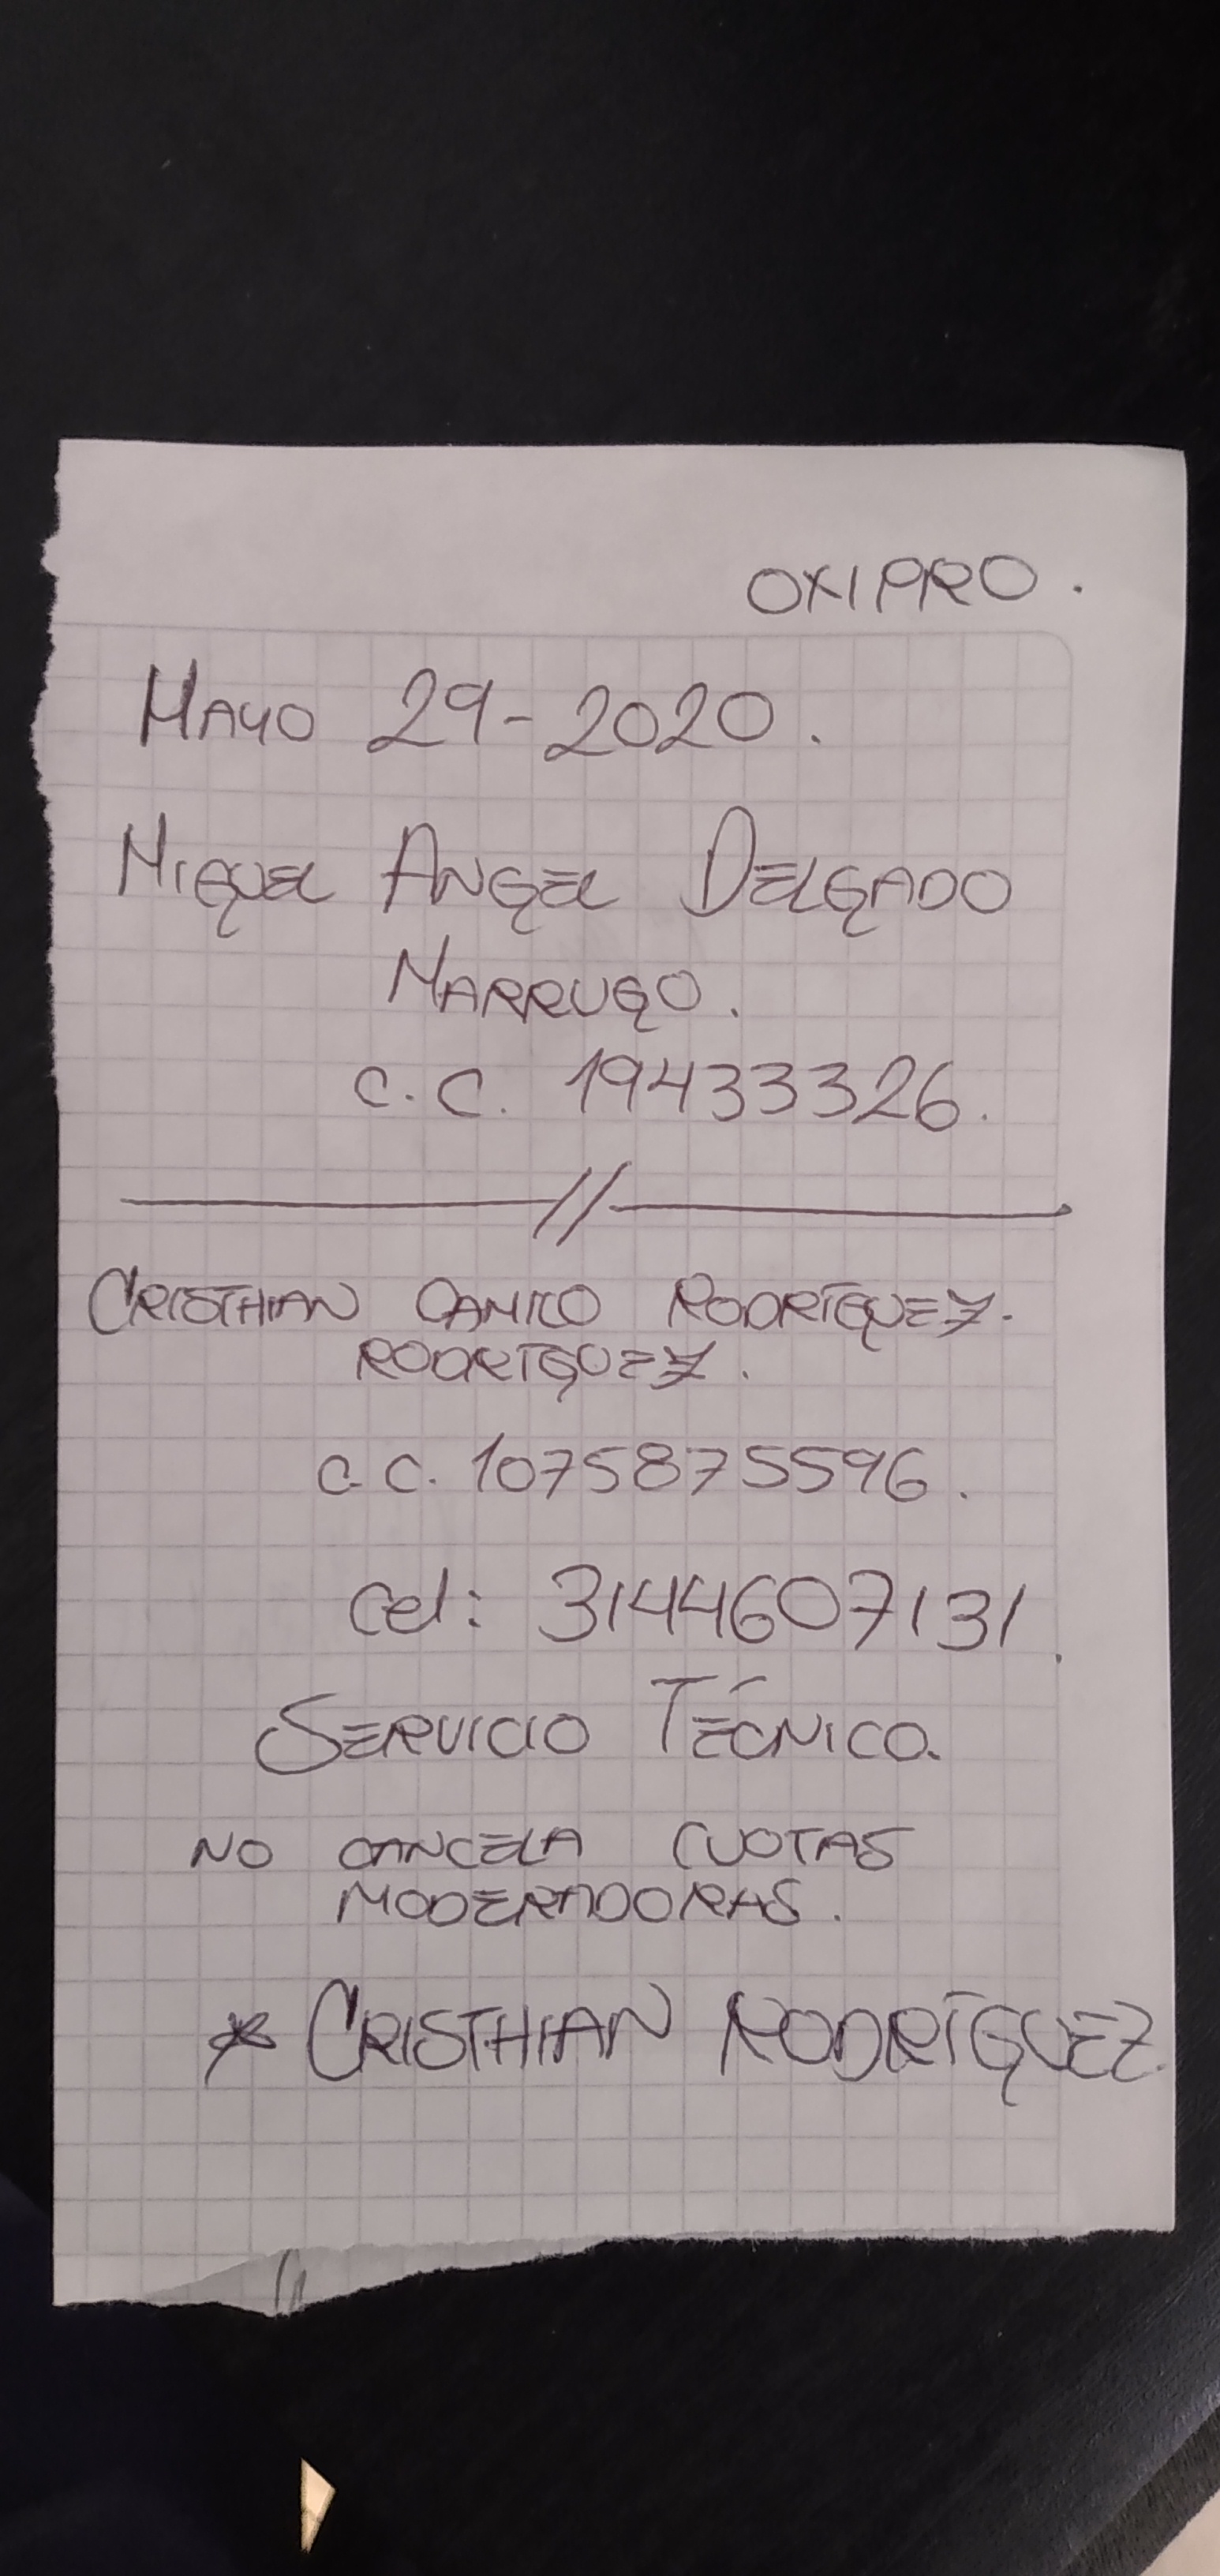 OXIPRO.
MAYO 29-2020.
MIGUEL ANGEL DELGADO
MARRUGO.
C.C. 19433326.
//
CRISTHIAN CAMILO RODRÍGUEZ.
RODRIGUEZ.
C.C. 1075875596.
Cel: 3144607131.
SERVICIO TÉCNICO.
NO CANCELA CUOTAS
MODERADORAS.
* CRISTHIAN RODRÍGUEZ.